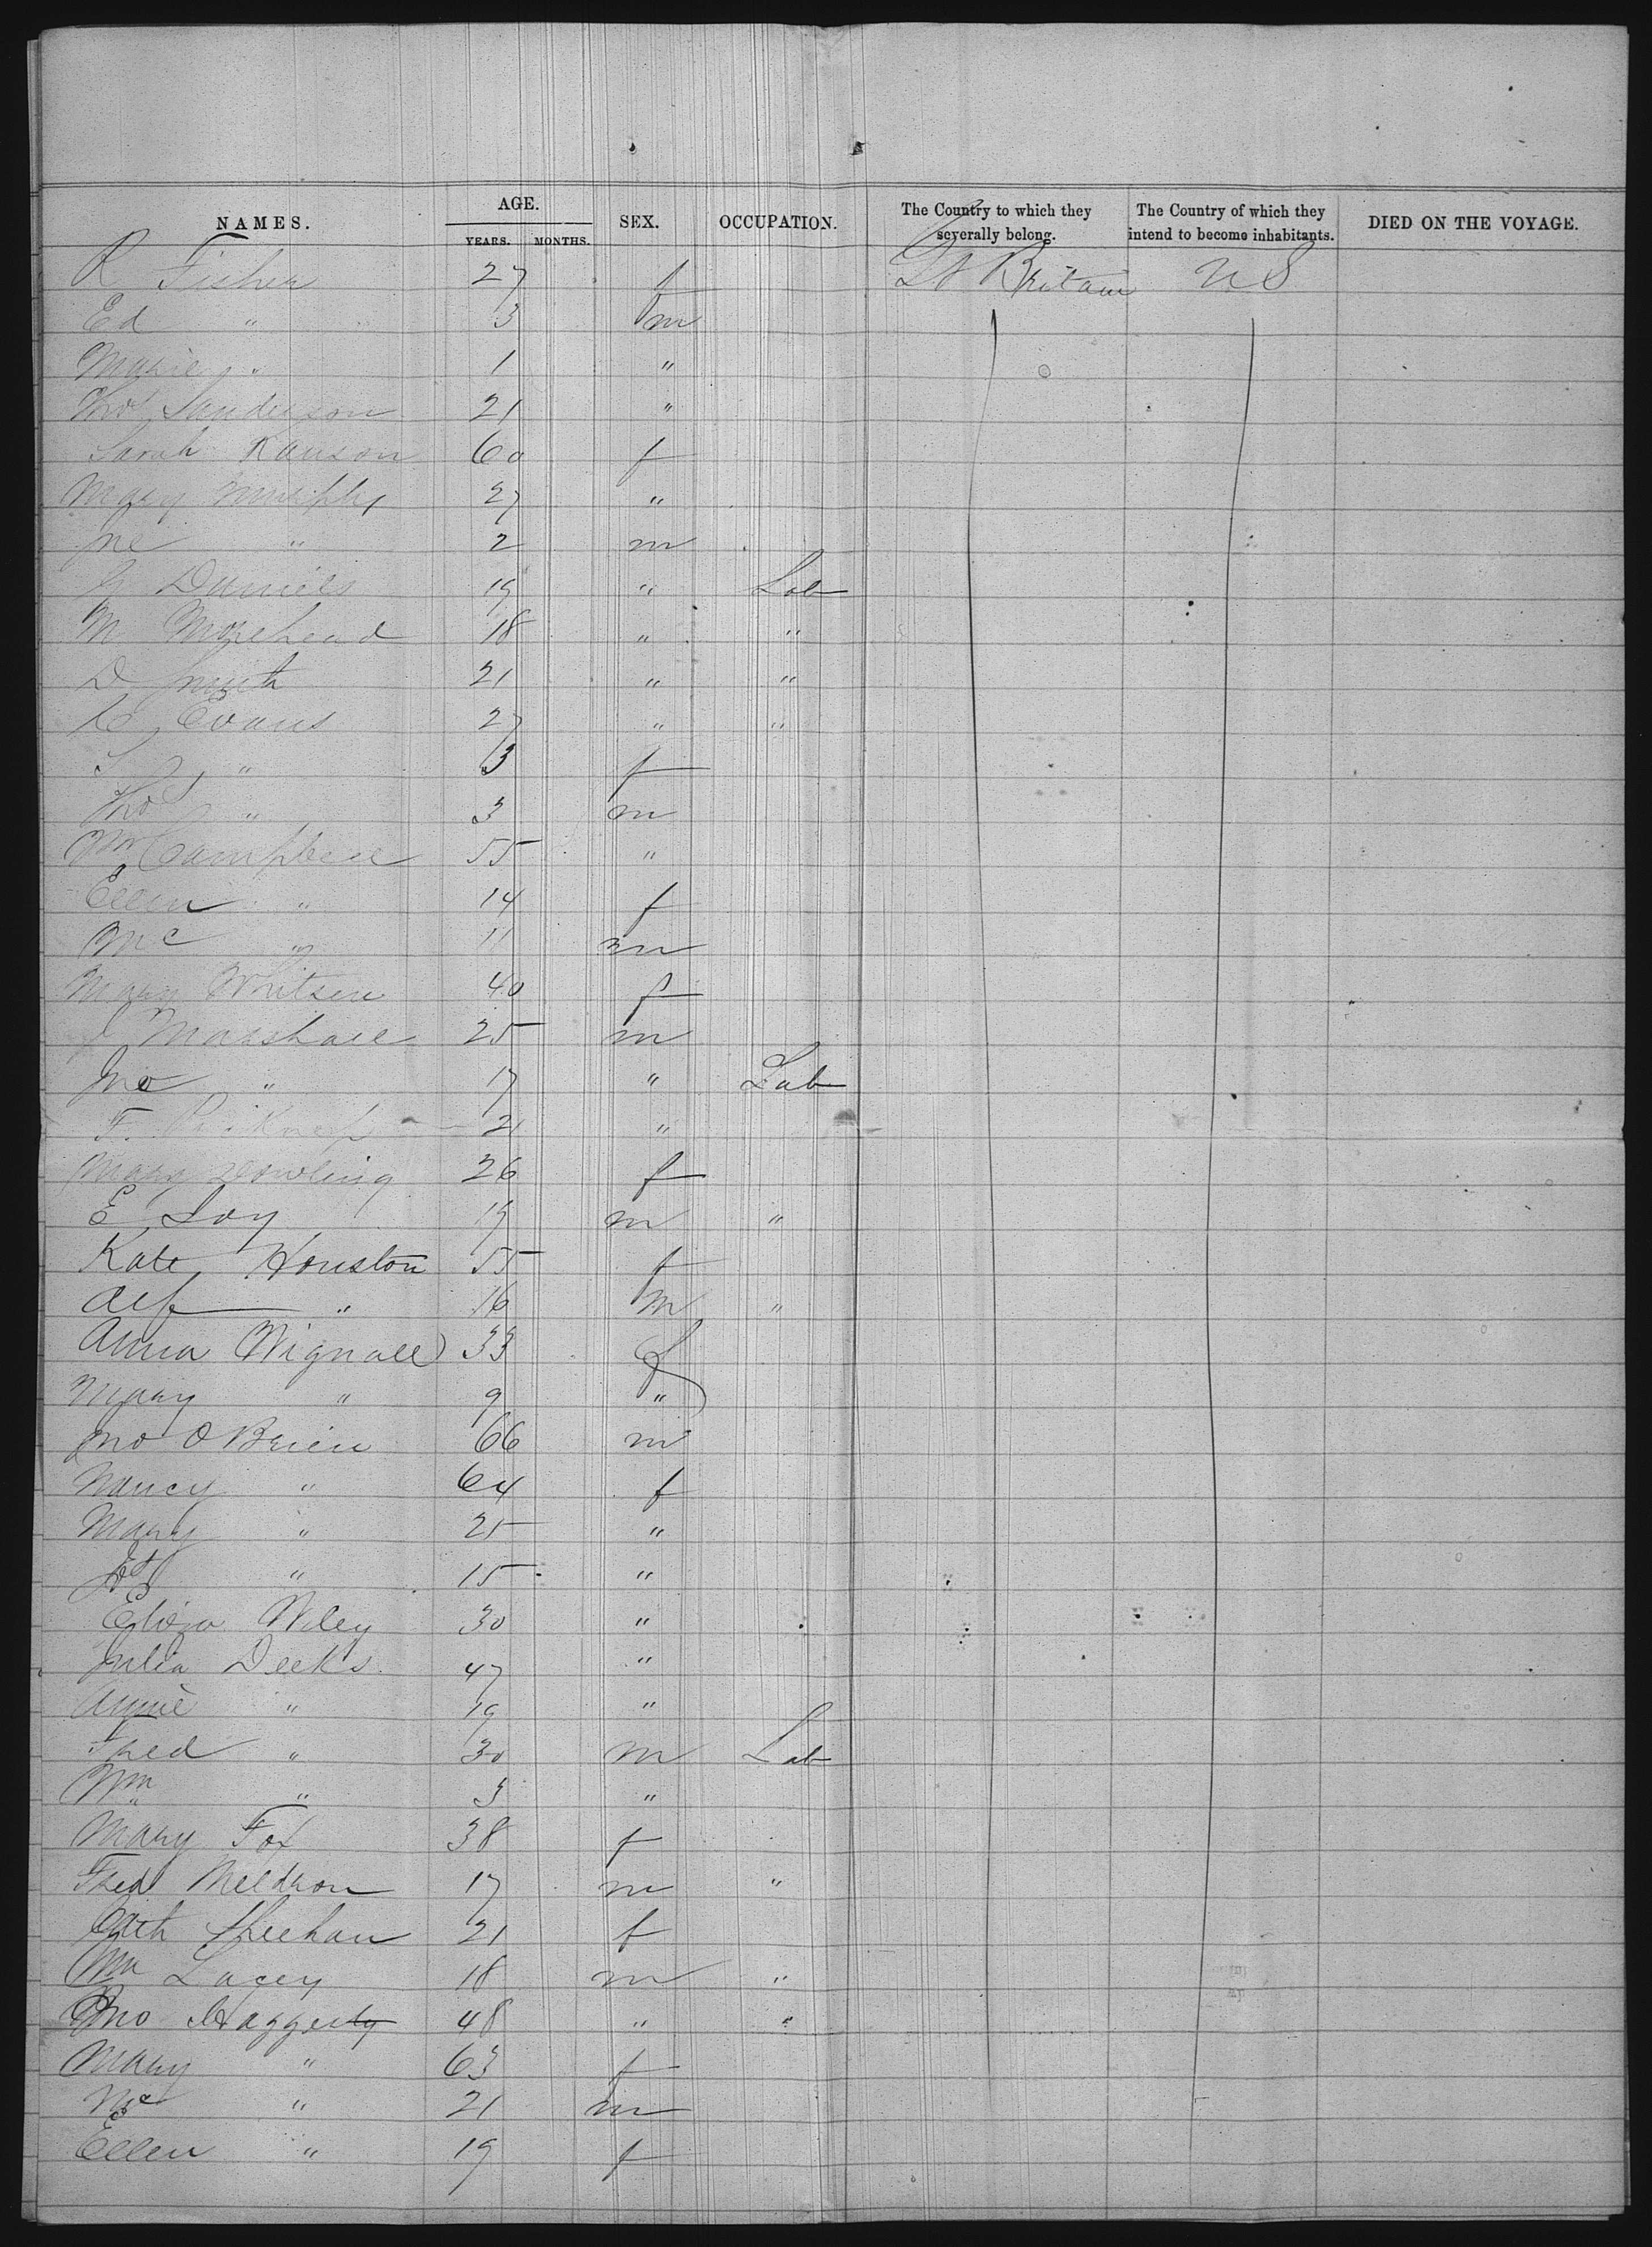 NAMES. AGE. YEARS. MONTHS. SEX. OCCUPATION. The Country to which they severally belong. The Country of which they intend to become inhabitants. DIED ON THE VOYAGE.
R Fisher 27 f Gt Britain U S
Ed " 3 m
Marie " 1 "
Thos Sanderson 21 "
Sarah Ranson 60 f
Mary Murphy 27 "
" 2 m
Daniels 19 " Lab
M Morehead 18 " "
D Smith 21 " "
Evans 27 " "
S " 3 f
Thos " 3 m
Wm Campbell 55 "
Ellen " 14 f
Mc " 11 m
Mary Whitsen 40 f
J Marshall 25 m
Jno " 17 " Lab
F. 21 "
Mary Dowling 26 f
E Loy 19 m "
Kate Houston 55 f
Alf " 16 m "
Anna Wignall 33 f
Mary " 9 "
Jno O Brien 66 m
Nancy " 64 f
Mary " 25 "
" 15 "
Eliza Wiley 30 "
Julia Deeks 47 "
Annie " 19 "
Fred " 30 m Lab
Wm " 3 "
Mary Fox 38 f
Fred Meldron 17 m "
Cath Sheehan 21 f
Wm Lacey 18 m "
Jno Haggerty 48 " "
Mary " 63 f
Mc " 21 m
Ellen " 19 f